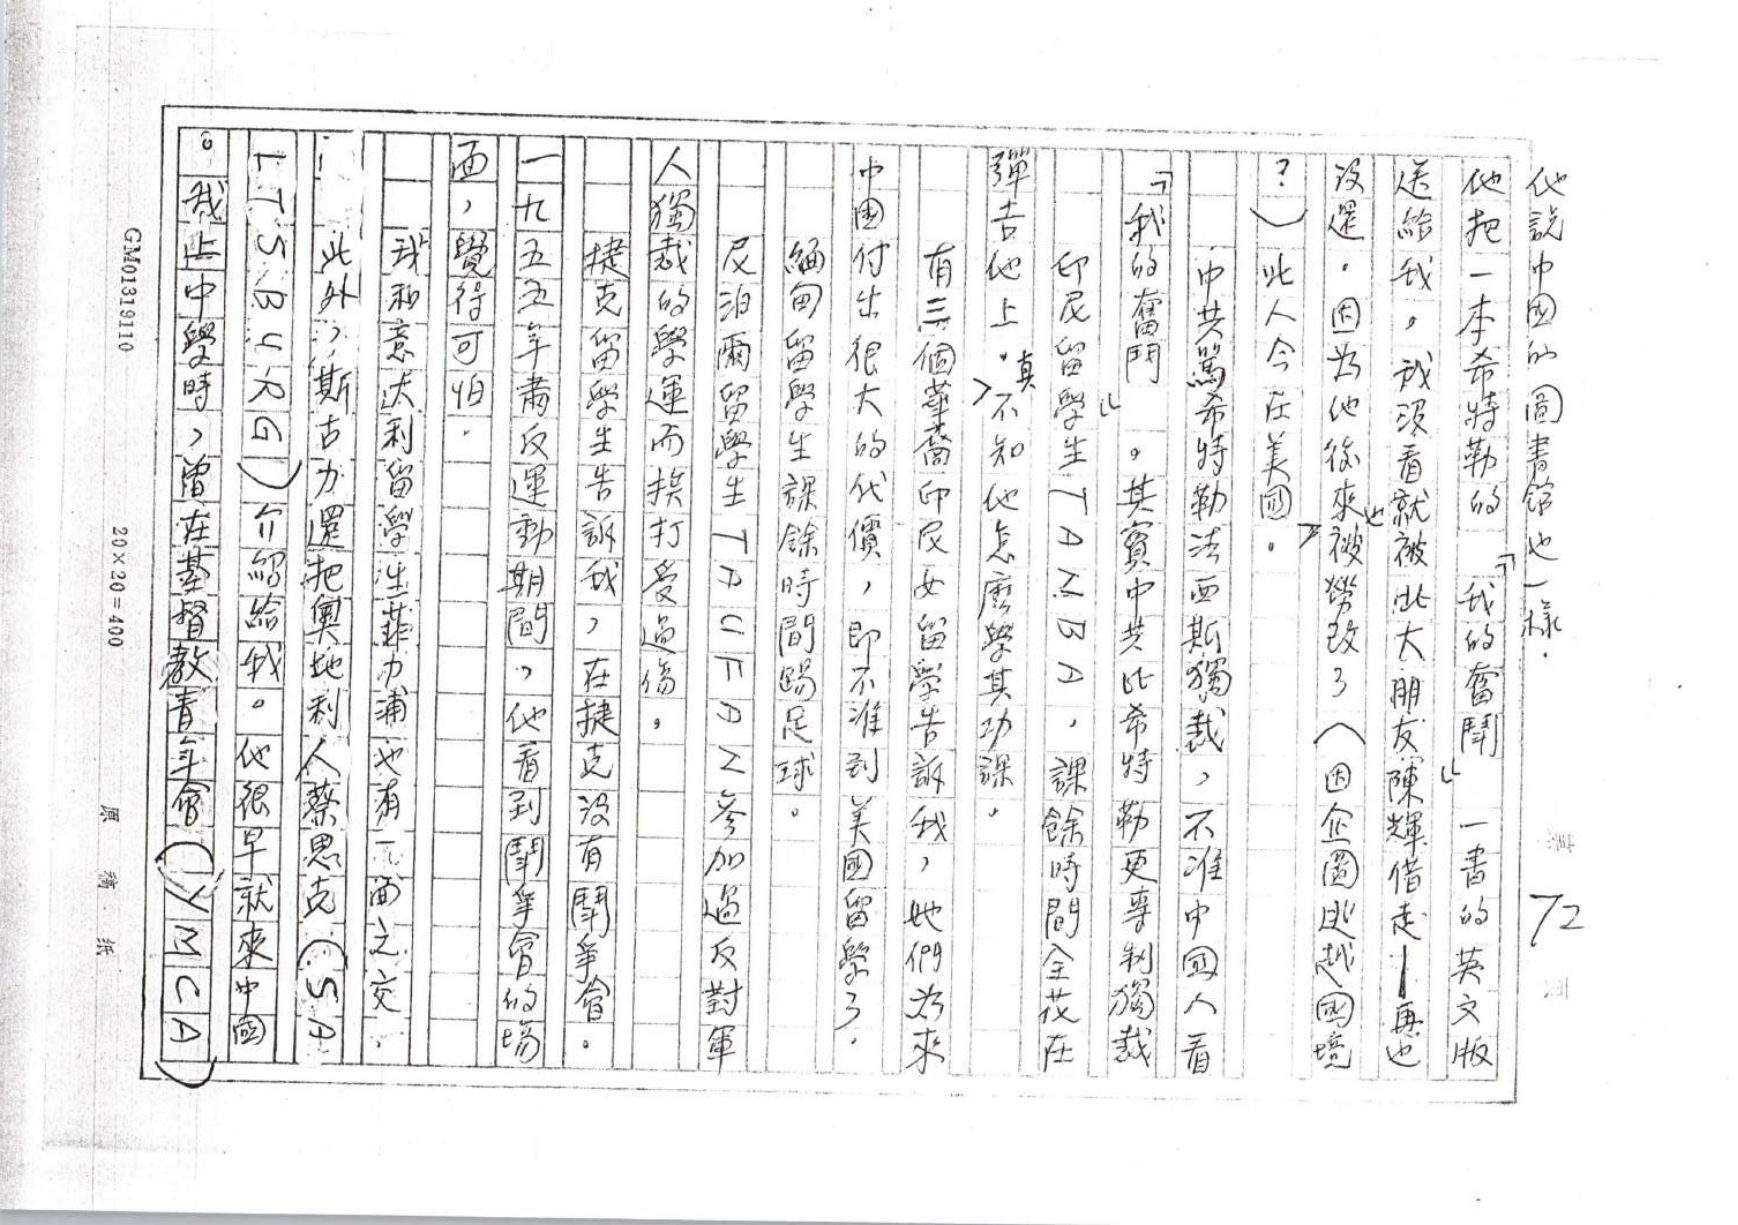 他說中國的圖書館也一樣.
第72頁
他把一本希特勒的「我的奮鬥」一書的英文版
送給我。我沒看就被此大朋友陳輝借走—再也
沒還。因為他後來也被勞改了(因企圖逃越國境
?)此人今在美國。
中共罵希特勒法西斯獨裁,不准中國人看
「我的奮鬥」。其實中共比希特勒更專制獨裁
印尼留學生TAMBA,課餘時間全花在
彈吉他上。真不知他怎麼學其功課。
有三個華裔印尼女留學告訴我,她們為來
中國付出很大的代價,即不准到美國留學了.
緬甸留學生課餘時間踢足球。
尼泊爾留學生TAUFAN參加過反對軍
人獨裁的學運而挨打受過傷。
捷克留學生告訴我,在捷克沒有鬥爭會。
一九五五年肅反運動期間,他看到鬥爭會的場
面,覺得可怕.
我和意大利留學生菲力浦也有一面之交.
此外,斯古力還把奧地利人蔡思克(SA
LTSBURG)介紹給我。他很早就來中國
。我上中學時,曾在基督教青年會(YMCA)
GM01319110
20×20=400
原稿紙